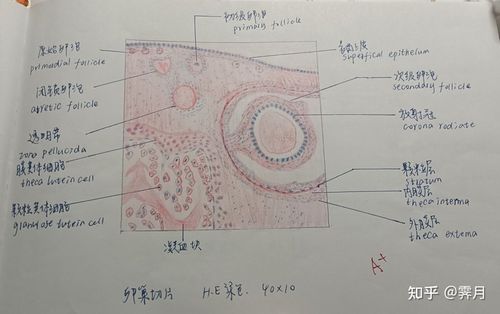 初级卵泡
primary follicle
原始卵泡
primodial follicle
表面上皮
superfical epithelum
闭锁卵泡
atretic follicle
次级卵泡
secondary follicle
透明带
zona pellucida
放射冠
corona radiate
膜黄体细胞
theca lutein cell
颗粒层
stratum
内膜层
theca interna
颗粒黄体细胞
granulose lutein cell
外膜层
theca extema
凝血块
A+
卵巢切片 H-E染色. 40×10
知乎 @霁月